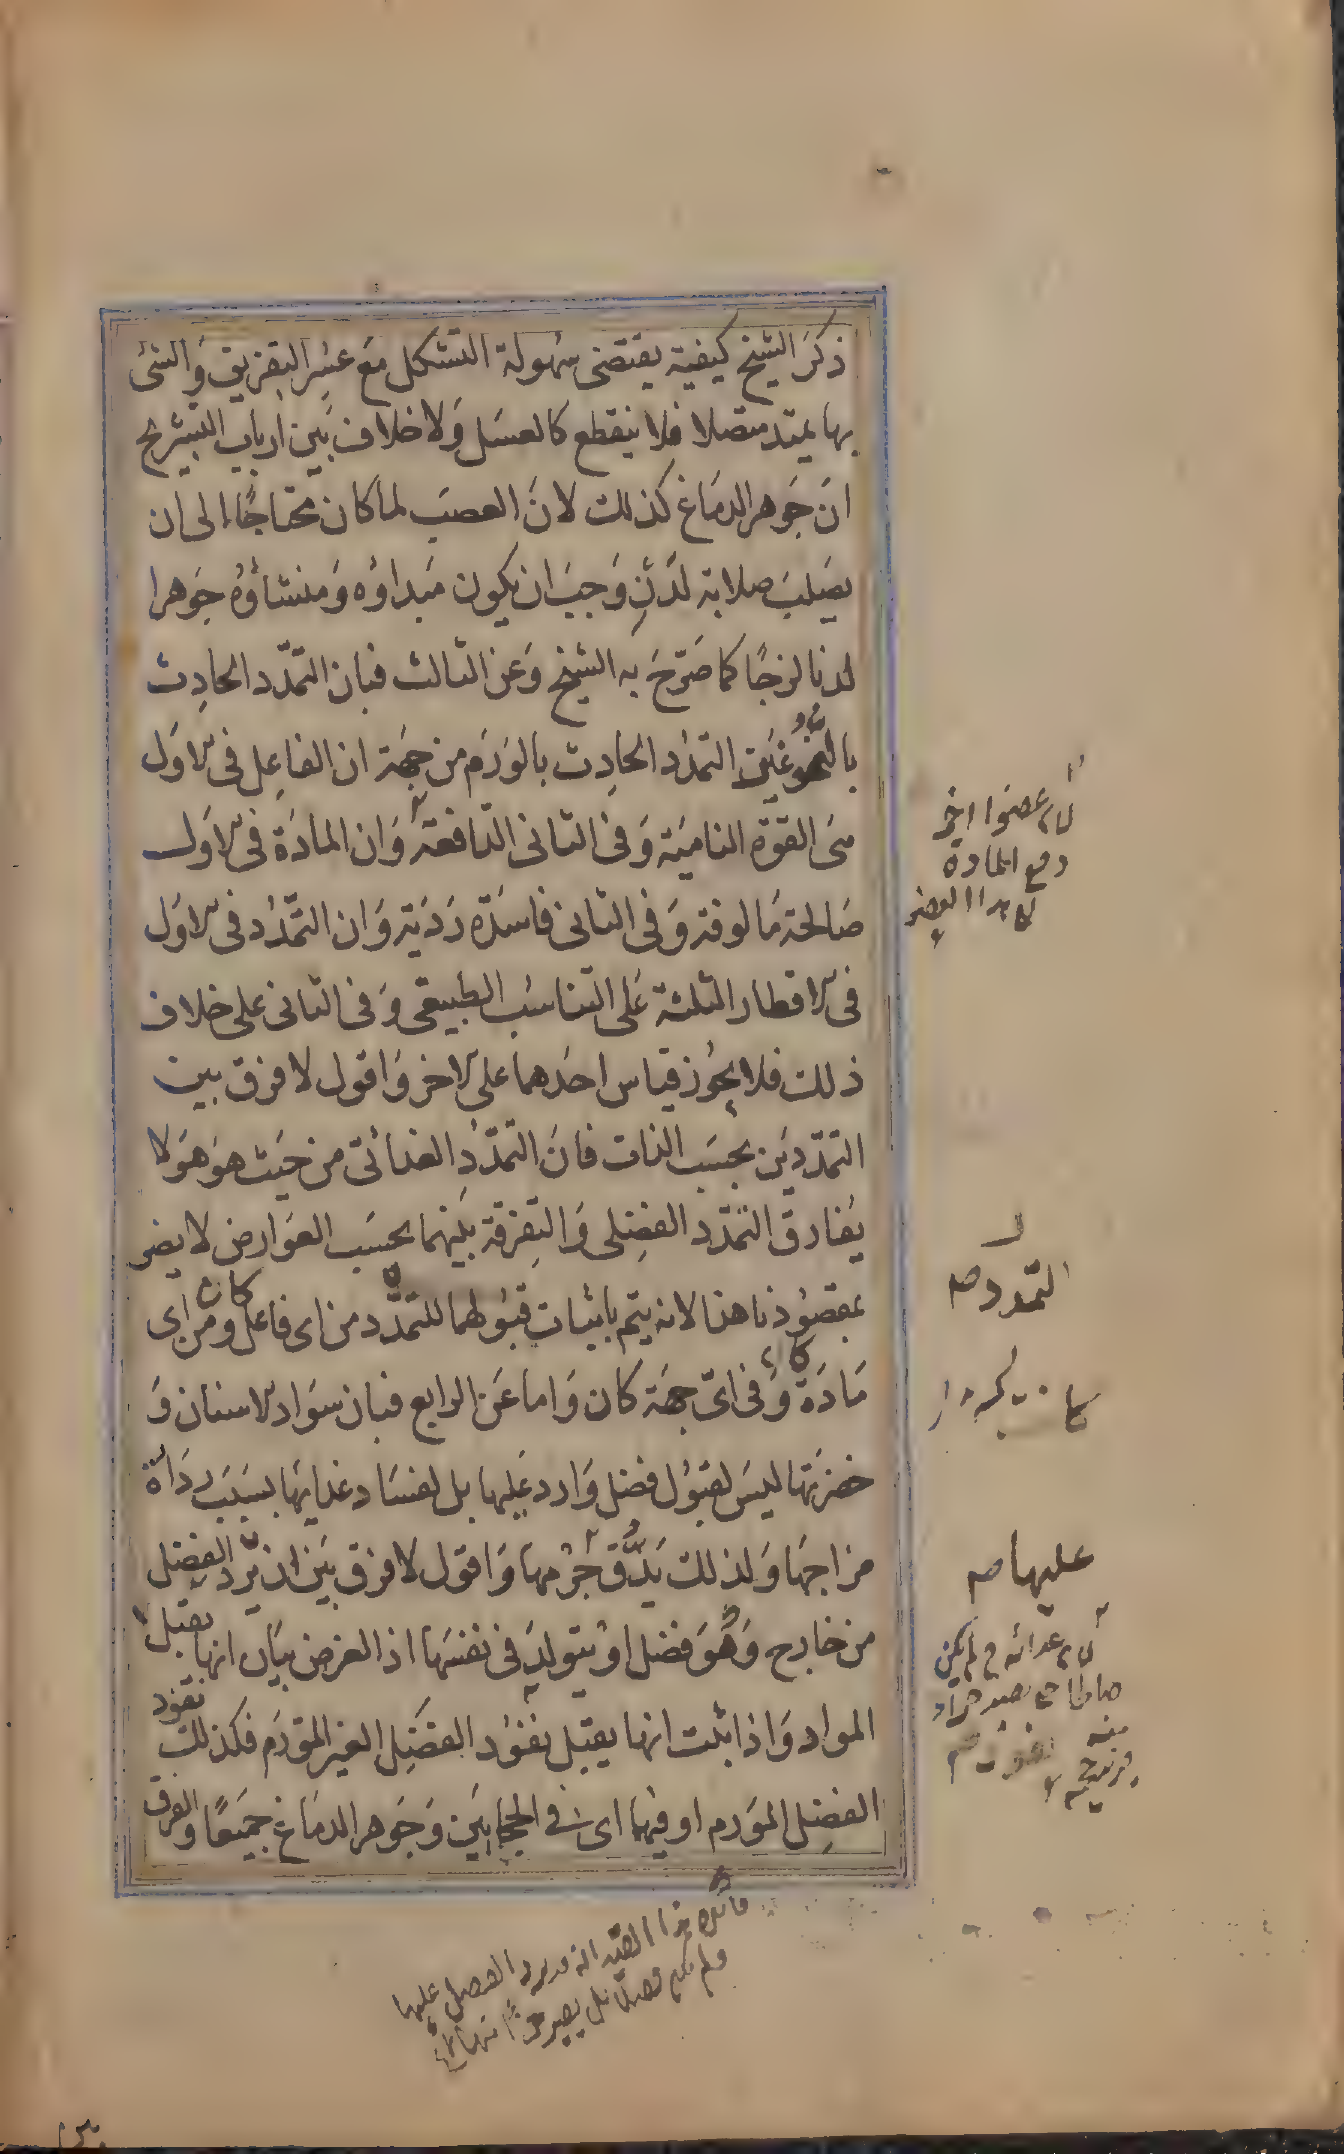 ذكر الشيخ كيفية يقتضى سهولة التشكل مع عسر التفريق والشئ
بها يمتد متصلا فلا ينقطع كالعسل ولا خلاف بين ارباب التشريح
ان جوهر الدماغ كذلك لان العصب لما كان محتاجا الى ان
يصلب صلابة لدن وجب ان يكون مبداؤه ومنشاؤه جوهرا
لدنا لزجا كما صرح به الشيخ وعن الثالث فبان التمدد الحادث
بالنمو غير التمدد الحادث بالورم من جهة ان الفاعل فى الاول
هى القوة النامية وفى الثانى الدافعة وان المادة فى الاول
صالحة مالوفة وفى الثانى فاسدة ردية وان التمدد فى الاول
فى الاقطار الثلثة على التناسب الطبيعى وفى الثانى على خلاف
ذلك فلا يجوز قياس احدهما على الاخر واقول لا فرق بين
التمددين بحسب الذات فان التمدد الغذائى من حيث هو هو لا
يفارق التمدد الفضلى والتفرقة بينهما بحسب العوارض لا يضر
بمقصودنا هذا لانه يتم باثبات قبولها للتمدد من اى فاعل كان ومن اى
مادة كا وفى اى جهة كان واما عن الرابع فبان سواد الاسنان و
خضرتها ليس لقبول فضل وارد عليها بل لفساد غذائها بسبب رداة
مزاجها ولذلك يدق جرمها واقول لا فرق بين ان يرد الفضل
من خارج وهو فضل او يتولد فى نفسها اذ الغرض بيان انها يقبل
المواد واذا ثبت انها يقبل نفوذ الفضل الغير المورم فكذلك نفوذ
الفضل المورم او فيهما اى فى الحجابين وجوهر الدماغ جميعا والفرق
اى عضوا اخر
دفع المادة
العضو
التمدد صه
عليها صه
اى غذائه لم يكن
فائدة هذا القيد انه قد يرد الفضل عليها
بين